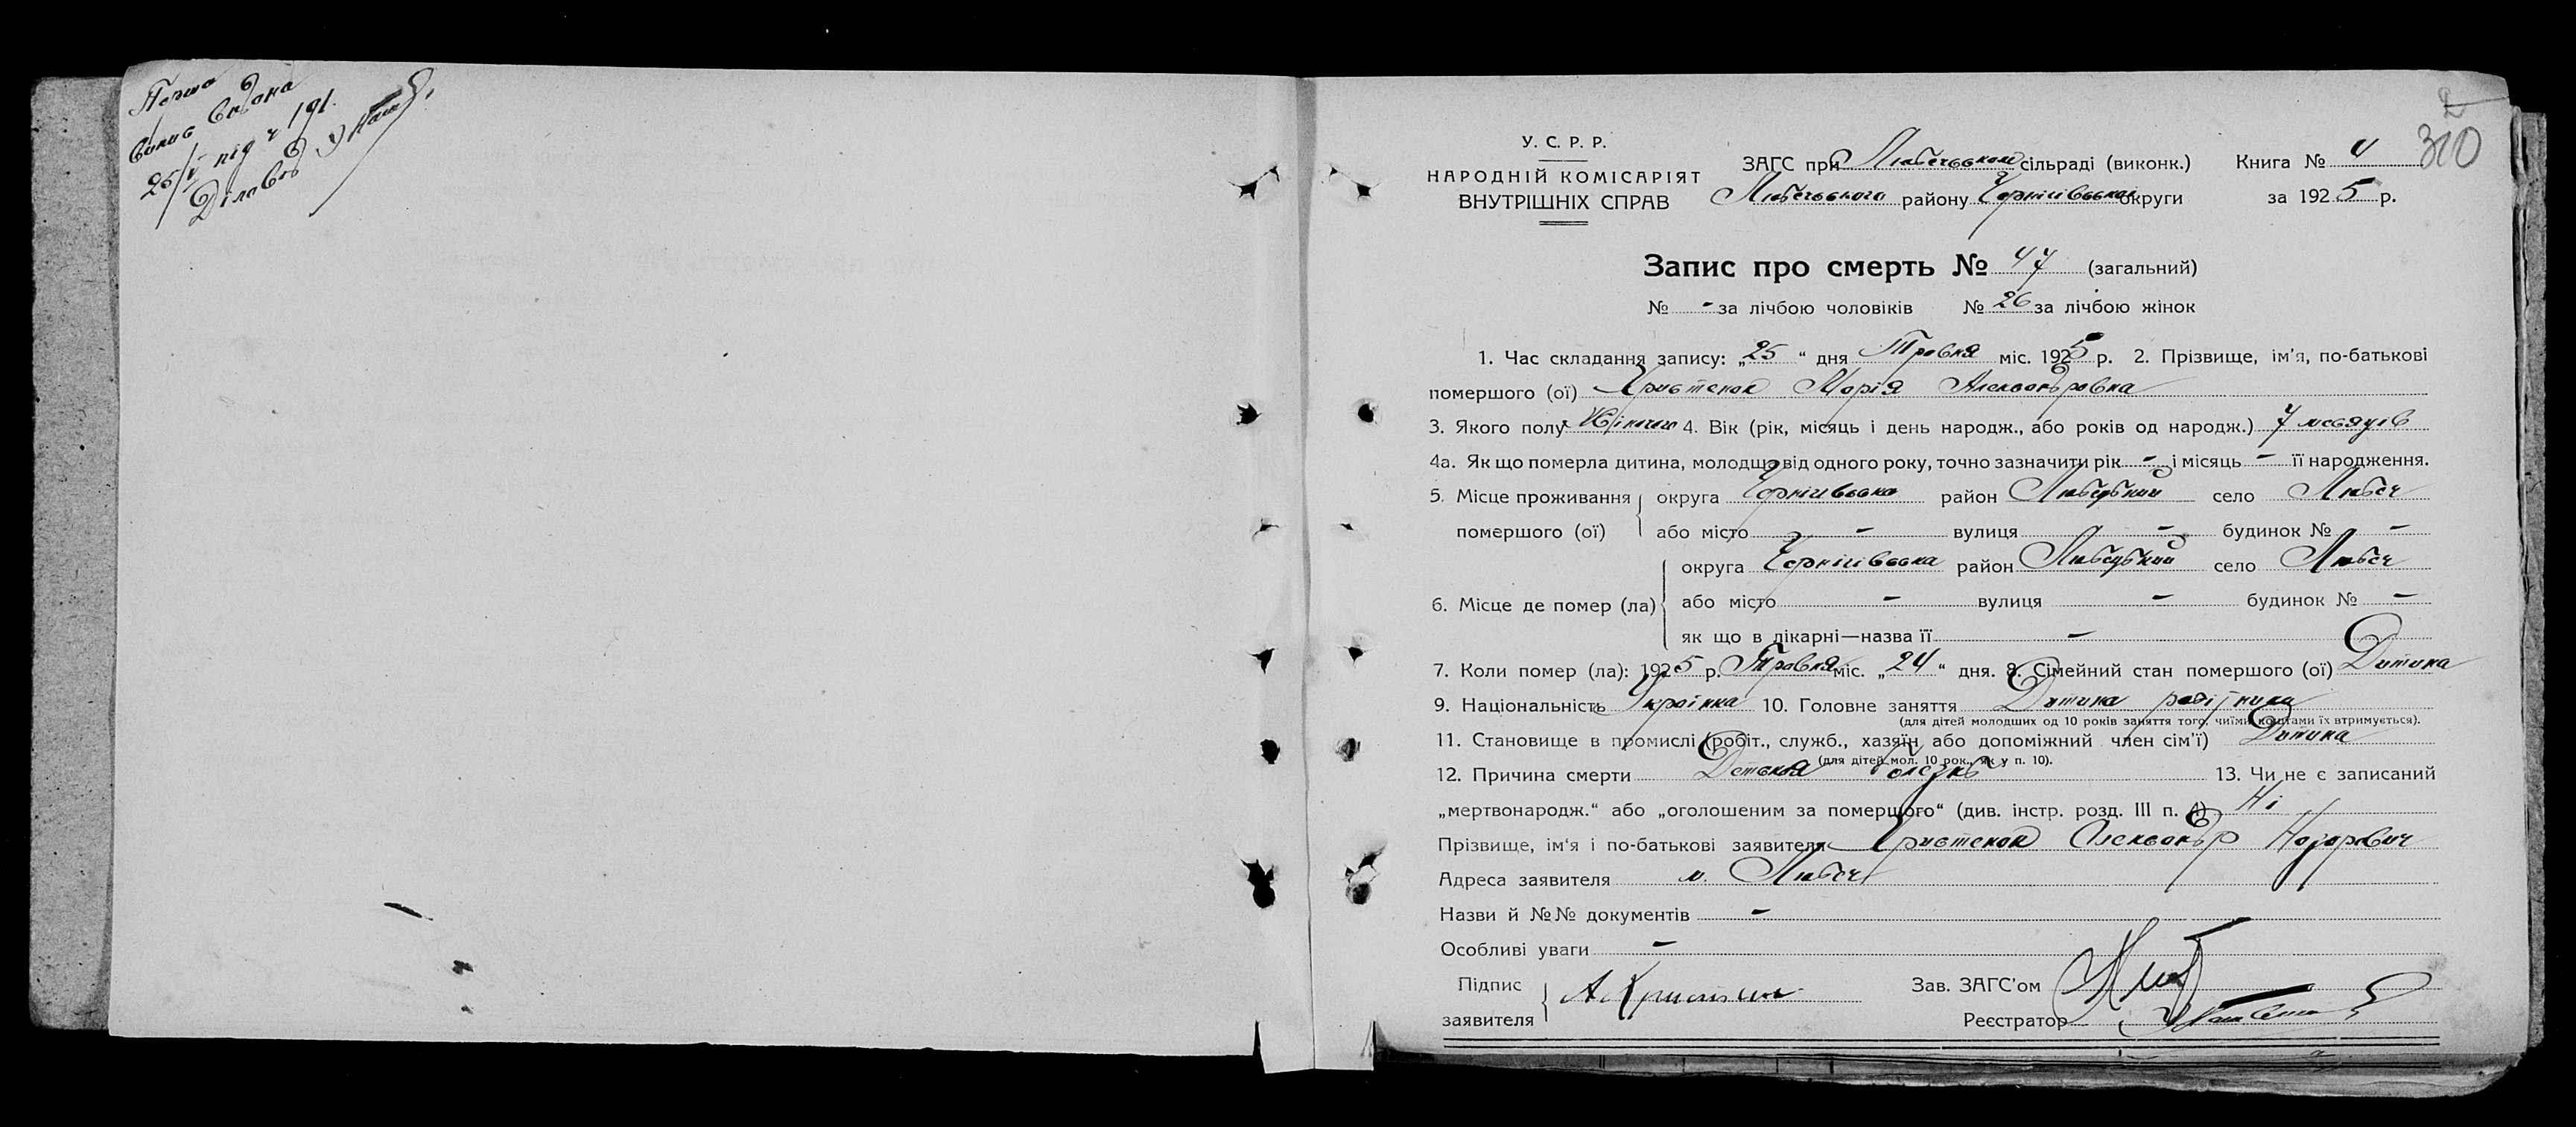 Перша
випис видана
25/V під ч 191.
Діловод
2
310
У. С. Р. Р.
НАРОДНІЙ КОМІСАРІЯТ
ВНУТРІШНІХ СПРАВ
ЗАГС при Любечськом сільраді (виконк.) Книга № 4
Любечського району Чернігівськой округи за 1925 р.
Запис про смерть № 47 (загальний)
№ - за лічбою чоловіків № 26 за лічбою жінок
1. Час складання запису: „25“ дня Травня міс. 1925 р. 2. Прізвище, ім’я, по-батькові
помершого (ої) Христенок Марія Александровна
3. Якого полу Жіночого 4. Вік (рік, місяць і день народж., або років од народж.) 7 місяців
4а. Як що померла дитина, молодща від одного року, точно зазначити рік - і місяць - її народження.
5. Місце проживання округа Чернігівська район Любецький село Любеч
помершого (ої) або місто - вулиця - будинок № -
округа Чернігівська район Любецький село Любеч
6. Місце де помер (ла) або місто - вулиця - будинок № -
як що в лікарні—назва її -
7. Коли помер (ла): 1925 р. Травня міс. „24“ дня. 8. Сімейний стан помершого (ої) Дитина
9. Національність Українка 10. Головне заняття Дитина робітника
(для дітей молодших од 10 років заняття того, чиїми коштами їх втримується).
11. Становище в промислі (робіт., служб., хазяїн або допоміжний член сім’ї) Дитина
(для дітей мол. 10 рок., як у п. 10).
12. Причина смерти Детская болезнь 13. Чи не є записаний
„мертвонародж.“ або „оголошеним за померщого“ (див. інстр. розд. III п. 4) Ні
Прізвище, ім‘я і по-батькові заявителя Христенок Александр Назарович
Адреса заявителя м. Любеч
Назви й №№ документів -
Особливі уваги -
Підпис А Христенок Зав. ЗАГС’ом
заявителя Реєстратор